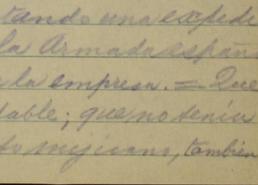 tando una expedi
la Armada españ
a la empresa. = Que
table; que no tenía
to mejicano, tambien